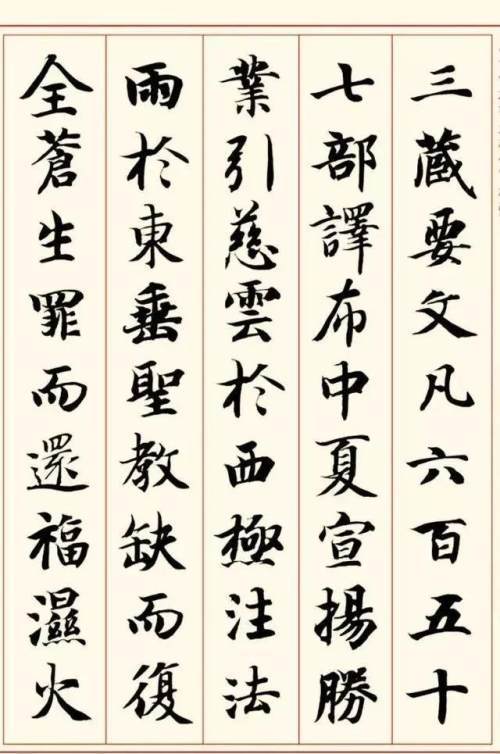 三藏要文凡六百五十
七部譯布中夏宣揚勝
業引慈雲於西極注法
雨於東垂聖教缺而復
全蒼生罪而還福濕火